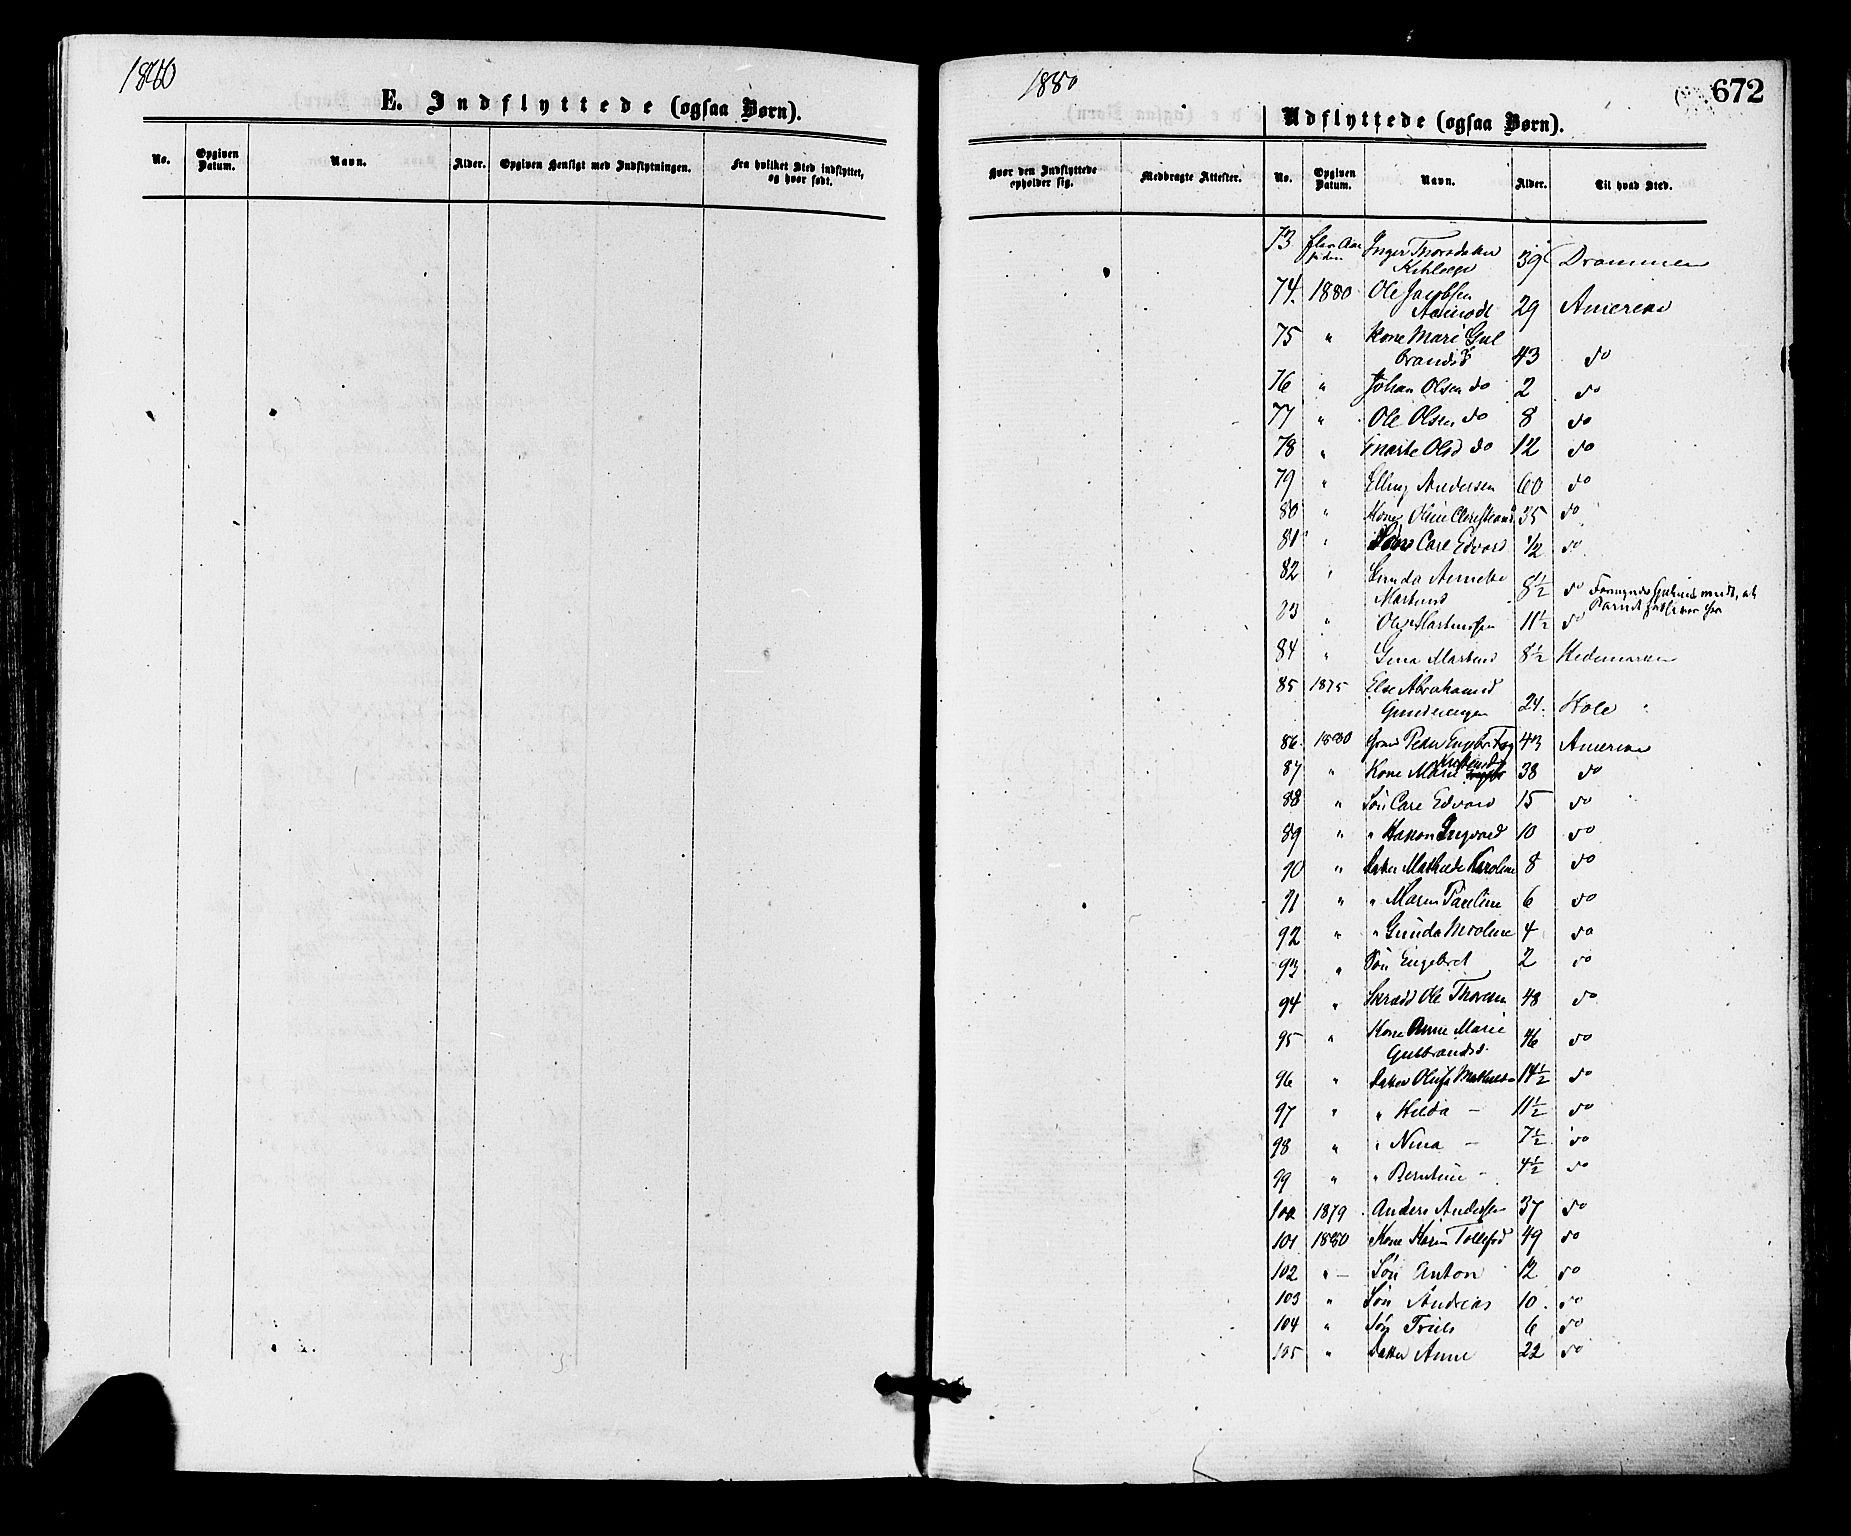 1880
E. Indflyttede (ogsaa Børn).
No. Opgiven Datum. Navn. Alder. Opgiven Hensigt med Indflytningen. Fra hvilket Sted indflyttet, og hvor født.
1880
672
Udflyttede (ogsaa Børn).
Hvor den Indflyttede opholder sig. Medbragte Attester. No. Opgiven Datum. Navn. Alder. Til hvad Sted.
73 Inger Thorsdatter 39 Drammen
74. 1880 Ole Jacobsen
Aamodt 29 Amerika
75 " Kone Mari Gul
brandsd 43 do
76 " Johan Olsen do 2 do
77 " Ole Olsen do 8 do
78 " Marte Olsd do 12 do
79 " Elling Andersen 60 do
80 " Kone 35 do
81 " Søn Carl Edvard 1/2 do
82 " 8 1/2 do
" Ole Martinssen 11 1/2 do
84 " Gina Martinsd 8 1/2 Hedemarken
85 1875 Else Abrahamsd
24. Hole
86. 1880 Peder 43 Amerika
87 " Kone Marie 38 do
88 " Søn Carl Edvard 15 do
89 " " Hakon Ingvald 10 do
90 " Datter Mathilde Karoline 8 do
91 " " Maren Pauline 6 do
92 " " Gunda 4 do
93 " Søn Engebret 2 do
94 " Skrædd Ole Thoresen 48 do
95 " Kone Anne Marie
Gulbrandsd. 46 do
96 " Datter Olufa Mathilde 14 1/2 do
97 " " Hilda - 11 1/2 do
98 " " Nina - 7 1/2 do
99 " " Berntine - 4 1/2 do
100 1879 Anders Andersen 37 do
101 1880 Kone Karen Tollefsd 49 do
102 " - Søn Anton 12 do
103 " Søn Andreas 10. do
104 " Søn Truls 6 do
105 " Datter Anne 22 do